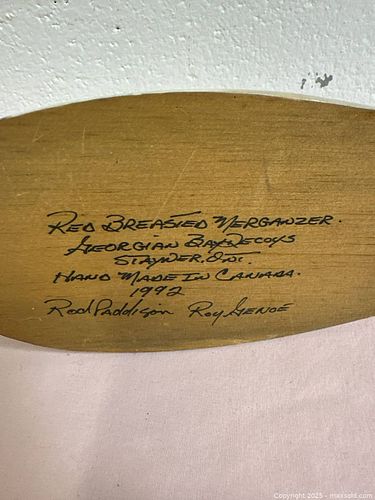 RED BREASTED MERGANZER.
GEORGIAN BAY DECOYS
STAYNER, ONT.
HAND MADE IN CANADA.
1992
Rod Paddison Roy Genoe
Copyright 2025 - maxsold.com